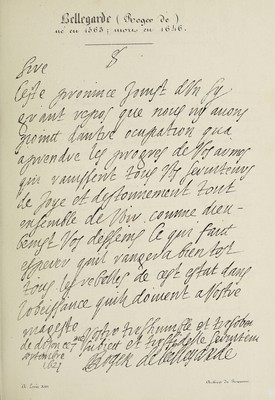 Bellegarde (Roger de)
né en 1563; mort en 1646.
Sire
Ceste province Jouist d'Un sy
grant repos que nous ny avons
point dautre ocupation qua
aprendre les progres de Vos armes
qui ravissent tous Vos serviteurs
de Joye et destonnement tout
ensemble de Voir comme dieu
benist Vos desseins Ce qui faict
esperer quil rangera bien tost
tous les rebelles de cest estat dans
lobeissance quils doivent a Vostre
mageste
de dijon ce
septembre
1621
Vostre tres humble et tres
subject et serviteur
Roger de bellegarde